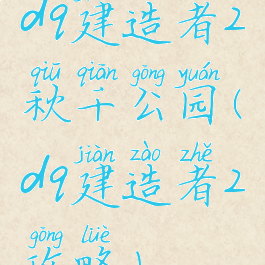 dq建造者2
qiū qiān gōng yuán
秋千公园(
jiàn zào zhě
dq建造者2
gōng lüè
攻略)